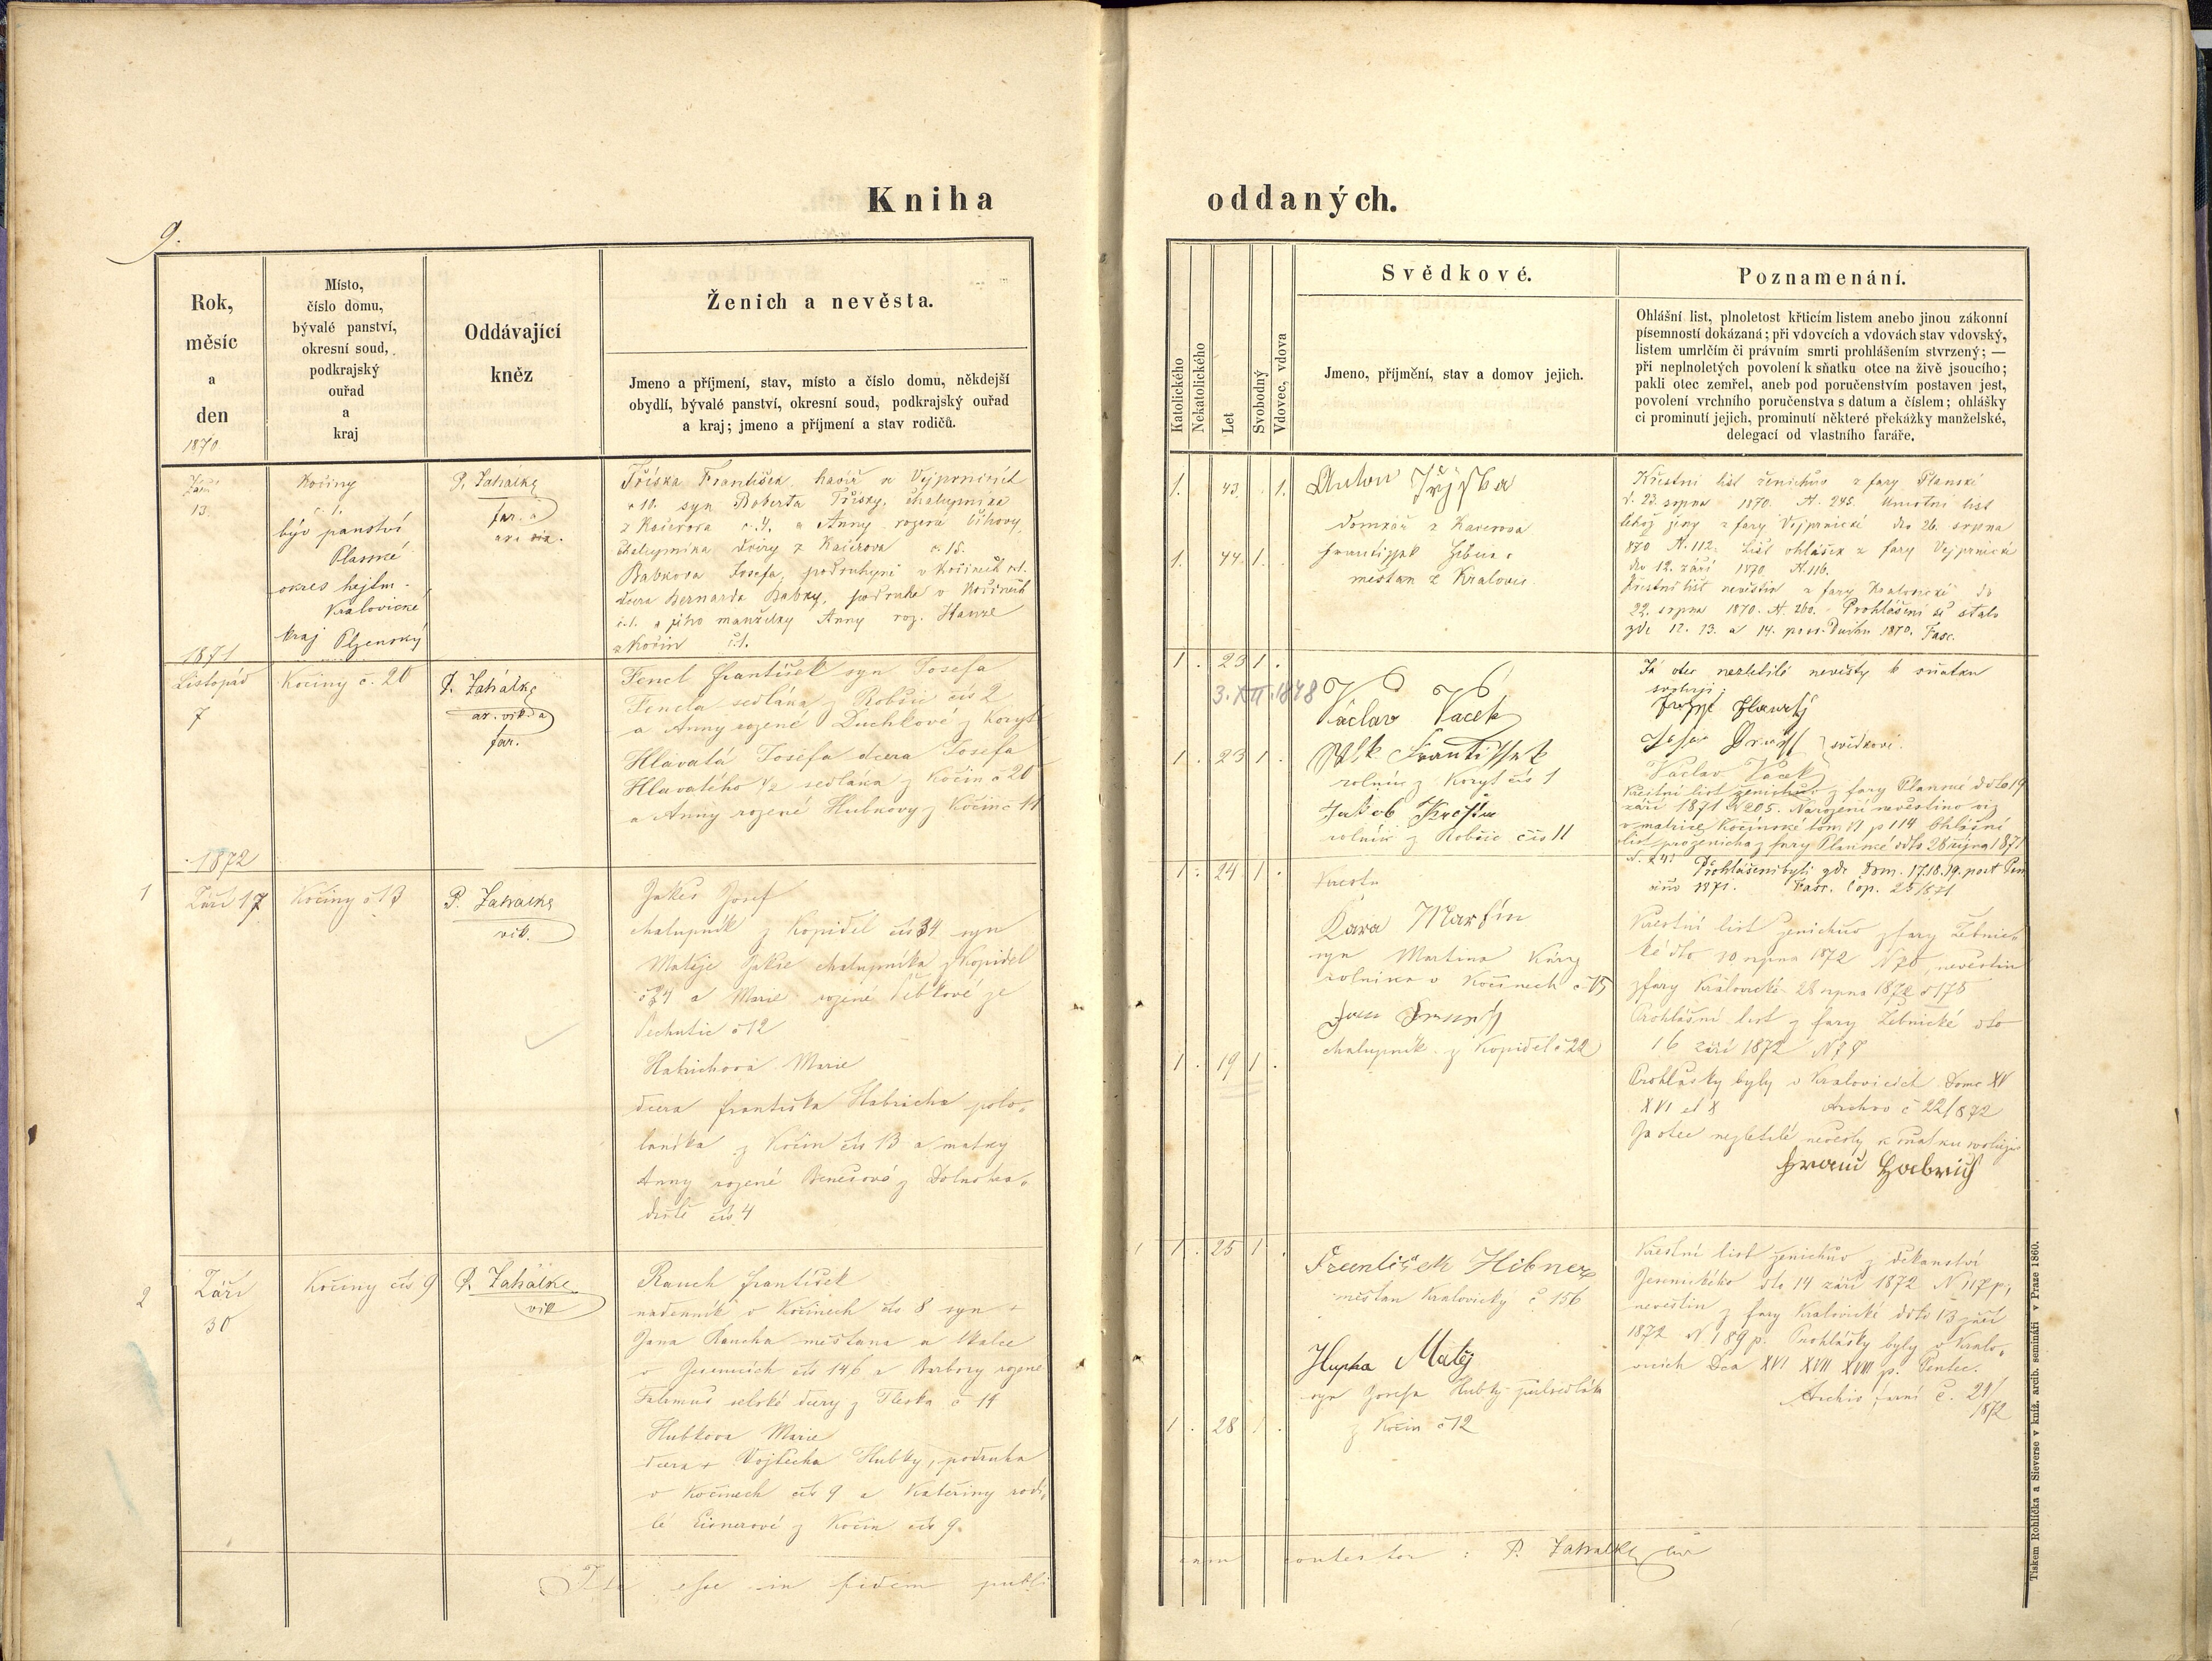 Kniha
oddaných.
9.
Rok,
měsíc
a
den
1870
Místo,
číslo domu,
bývalé panství,
okresní soud,
podkrajský
ouřad
a
kraj
Oddávající
kněz
Ženich a nevěsta.
Jmeno a příjmení, stav, místo a číslo domu, někdejší
obydlí, bývalé panství, okresní soud, podkrajský ouřad
a kraj; jmeno a příjmení a stav rodičů.
Katolického
Nekatolického
Let
Svobodný
Vdovec, vdova
Svědkové.
Jmeno, příjmění, stav a domov jejich.
Poznamenání.
Ohlášní list, plnoletost křticím listem anebo jinou zákonní
písemností dokázaná; při vdovcích a vdovách stav vdovský,
listem umrlčím či právním smrti prohlášením stvrzený; —
při neplnoletých povolení k sňatku otce na živě jsoucího;
pakli otec zemřel, aneb pod poručenstvím postaven jest,
povolení vrchního poručenstva s datum a číslem; ohlášky
ci prominutí jejich, prominutí některé překážky manželské,
delegací od vlastního faráře.
Září
13.
Kočiny
č. 1.
býv panství
Plasské
okres hejtm.
Kralovické
kraj Plzenský
P. Zahálka
far. a
Tříska František, havíř v Vejprnicích
č 10. syn Roberta Třísky, chalupníka
z Kačerova č. 4. a Anny rozená
chalupníka dcery z Kačerova č. 15.
Babkova Josefa, podruhyně v Kočinech č1.
dcera Bernarda Babky, podruha v Kočinech
č.1. a jeho manželky Anny roz. Hanzl
z Kočin č.1.
1. 43. 1.
1. 44. 1.
Anton
domkář z Kacerova
Frantissek
měštan z Kralovic
Křestní list ženichův z fary Planské
d. 23. srpna 1870. N. 245. Umrtní list
ženy z fary Vejprnické dto 26. srpna
870 N. 112. List ohlášek z fary Vejprnické
dto 12. září 1870 N. 116.
Křestní list nevěstin z fary Kralovické do
22. srpna 1870. N. 260. Prohlášení se stalo
zde 12. 13. a 14. po sv. Duchu 1870. Fasc.
1871
Listopád
7
Kočiny č. 20
P. Zahálka
ar. vik. a
far.
Fencl František syn Josefa
Fencla sedlána z Robšic čís 2
a Anny rozené Duchkové z Koryt
Hlavatá Josefa dcera Josefa
Hlavatého ½ sedlána z Kočin č 20
a Anny rozené Hubkovy z Kočin č 11
1. 23 1.
3. XII. 1848
1. 23 1.
Václav Vacek
Frantissek
rolník z Koryt čís 1
Jakob
rolník z Robšic čís 11
Já otec nezletilé nevěsty k sňatku
svoluji:
svědkové.
Václav Vacek
Křestní list ženichův z fary Planské ddto 19
září 1871 N 205. Narození nevěstino viz
v matrice Kočinské tom VI p 114 Ohlášní
list pro ženicha z fary Planské ddto 28 října 1871
Prohlášení byli zde Dom. 17. 18. 19. post Pen
1871. Fasc. Cop. 25/871
1872
1
Září 17
Kočiny č 13
P. Zahálka
vik.
Jakeš Josef
chalupník z Kopidel čís 34 syn
Matěje Jakše chalupníka z Kopidel
č 34 a Marie rozené ze
Pechutic č 12
Habrichová Marie
dcera Františka Habricha polo-
laníka z Kočin čís 13 a matky
Anny rozené Benešové z Dolnohra-
diště čís 4
1. 24 1.
1. 19 1.
Kara Martin
syn Martina Káry
rolníka v Kočinech č 15
chalupník z Kopidel č 22
Křestní list ženichův z fary Žebnic-
ké dto 10 srpna 1872 N 70, nevěstin
z fary Kralovické 28 srpna 1872 N 175
Prohlášní list z fary Žebnické dto
16 září 1872 N 78
Prohlášky byly v Kralovicích Dome XV
XVI et X Archiv č 22/872
Ja otec nezletilé nevěsty k sňatku svoluji
Franz Habrich
2
Září
30
Kočiny čís 9
P. Zahálka
vik
Rauch František
nadenník v Kočinech čís 8 syn +
Jana Raucha měštana a tkalce
v Jesenicích čís 146 a Barbory rozené
selské dcery z Tleska č 14
Hubkova Marie
dcera + Vojtěcha Hubky, podruha
v Kočinech čís 9 a Kateřiny rodi-
lé Eisnerové z Kočin čís 9.
1. 25 1.
1. 28 1.
František Hibner
měštan Kralovický č 156
Hupka Matěj
syn Josefa Hubky půlsedláka
z Kočin č 12
Křestní list ženichův z děkanství
Jesenického dto 14 září 1872 N 117 p;
nevěstin z fary Kralovické ddto 13 září
1872 N 189 p. Prohlášky byly v Kralo-
vicích Dca XVI XVII XVIII p. Pentec.
Archiv farní č. 21/872
Ita esse in fidem publi
cam contestor : P. Zahálka
Tiskem Rohlíčka a Sieverse v kníž. arcib. semináři v Praze 1860.